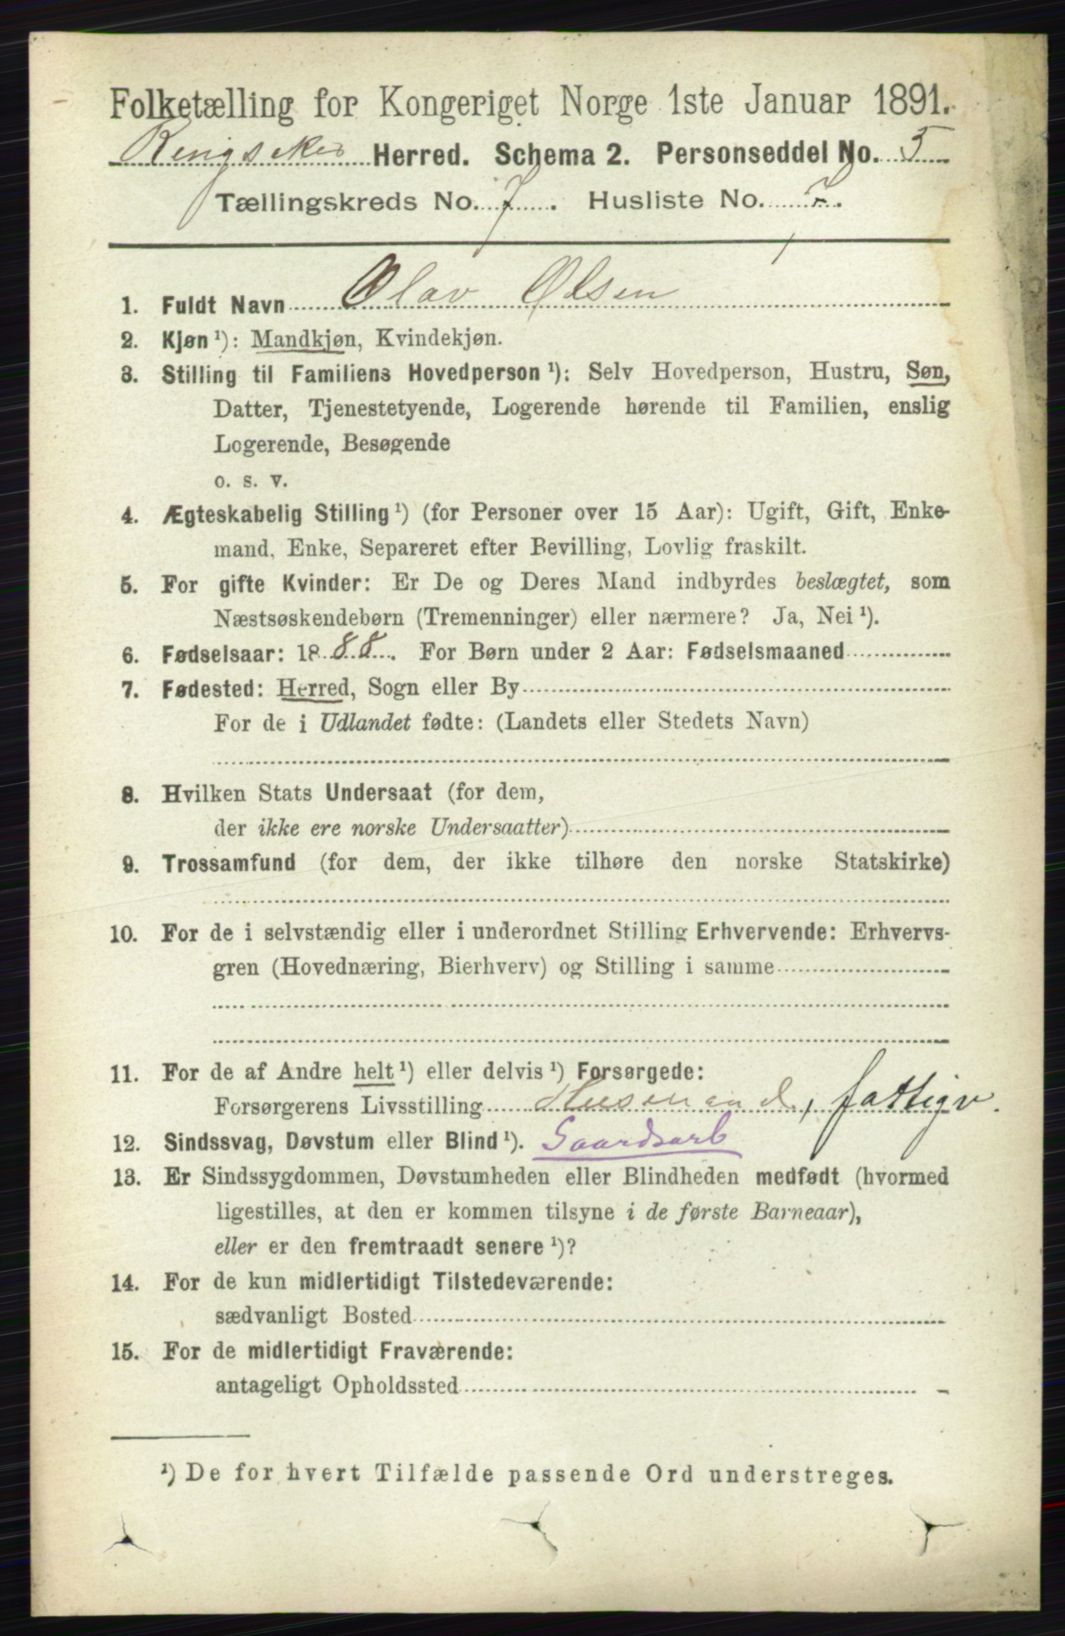 Folketælling for Kongeriget Norge 1ste Januar 1891.
Ringsaker Herred. Schema 2. Personseddel No. 5
Tællingskreds No. 7. Husliste No. 7.
1. Fuldt Navn Olav Olsen
2. Kjøn ¹): Mandkjøn, Kvindekjøn.
3. Stilling til Familiens Hovedperson ¹): Selv Hovedperson, Hustru, Søn,
Datter, Tjenestetyende, Logerende hørende til Familien, enslig
Logerende, Besøgende
o. s. v.
4. Ægteskabelig Stilling ¹) (for Personer over 15 Aar): Ugift, Gift, Enke-
mand, Enke, Separeret efter Bevilling, Lovlig fraskilt.
5. For gifte Kvinder: Er De og Deres Mand indbyrdes beslægtet, som
Næstsøskendebørn (Tremenninger) eller nærmere? Ja, Nei ¹).
6. Fødselsaar: 1888. For Børn under 2 Aar: Fødselsmaaned
7. Fødested: Herred, Sogn eller By
For de i Udlandet fødte: (Landets eller Stedets Navn)
8. Hvilken Stats Undersaat (for dem,
der ikke ere norske Undersaatter)
9. Trossamfund (for dem, der ikke tilhøre den norske Statskirke)
10. For de i selvstændig eller i underordnet Stilling Erhvervende: Erhvervs-
gren (Hovednæring, Bierhverv) og Stilling i samme
11. For de af Andre helt ¹) eller delvis ¹) Forsørgede:
Forsørgerens Livsstilling Husmand, fattigv.
12. Sindssvag, Døvstum eller Blind ¹). Gaardsarb
13. Er Sindssygdommen, Døvstumheden eller Blindheden medfødt (hvormed
ligestilles, at den er kommen tilsyne i de første Barneaar),
eller er den fremtraadt senere ¹)?
14. For de kun midlertidigt Tilstedeværende:
sædvanligt Bosted
15. For de midlertidigt Fraværende:
antageligt Opholdssted
¹) De for hvert Tilfælde passende Ord understreges.